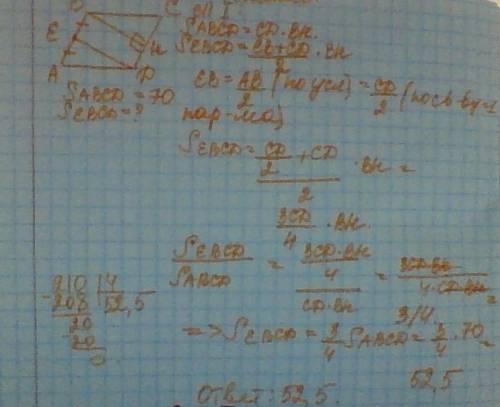 B C
E
H
A D
S_ABCD = CD · BH
S_EBCD = (EB + CD)/2 · BH
S_ABCD = 70
EB = AB/2 (по усл) = CD/2 (по св-ву
S_EBCD = ?
пар-ма)
S_EBCD = (CD/2 + CD)/2 · BH =
3CD/4 · BH.
S_EBCD/S_ABCD = (3CD · BH/4)/(CD · BH) = 3CD · BH/(4 · CD · BH) =
3/4
210 | 4
- 208 | 52,5
20
20
0
=> S_EBCD = 3/4 S_ABCD = 3/4 · 70 =
52,5
Ответ: 52,5.